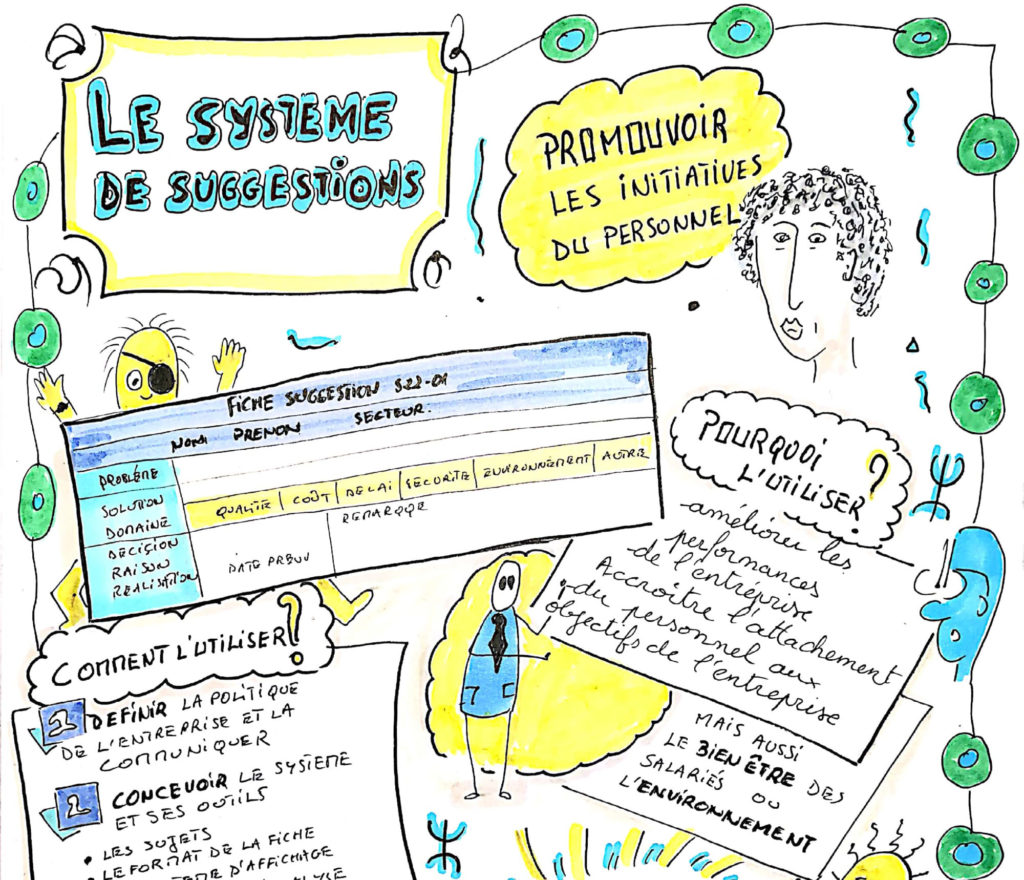 LE SYSTEME
DE SUGGESTIONS
PROMOUVOIR
LES INITIATIVES
DU PERSONNEL
FICHE SUGGESTION S22-01
NOM PRENOM SECTEUR
PROBLÉME
SOLUTION
DOMAINE
QUALITE COÛT DELAI SECURITE ENVIRONNEMENT AUTRE
DECISION
RAISON
REALISATION
REMARQUE
DATE
POURQUOI
L'UTILISER ?
améliorer les
performances
de l'entreprise
Accroître l'attachement
du personnel aux
objectifs de l'entreprise
MAIS AUSSI
LE BIEN ÊTRE DES
SALARIÉS OU
L'ENVIRONNEMENT
COMMENT L'UTILISER ?
1 DEFINIR LA POLITIQUE
DE L'ENTREPRISE ET LA
COMMUNIQUER
2 CONCEVOIR LE SYSTÈME
ET SES OUTILS
• LES SUJETS
• LE FORMAT DE LA FICHE
D'AFFICHAGE